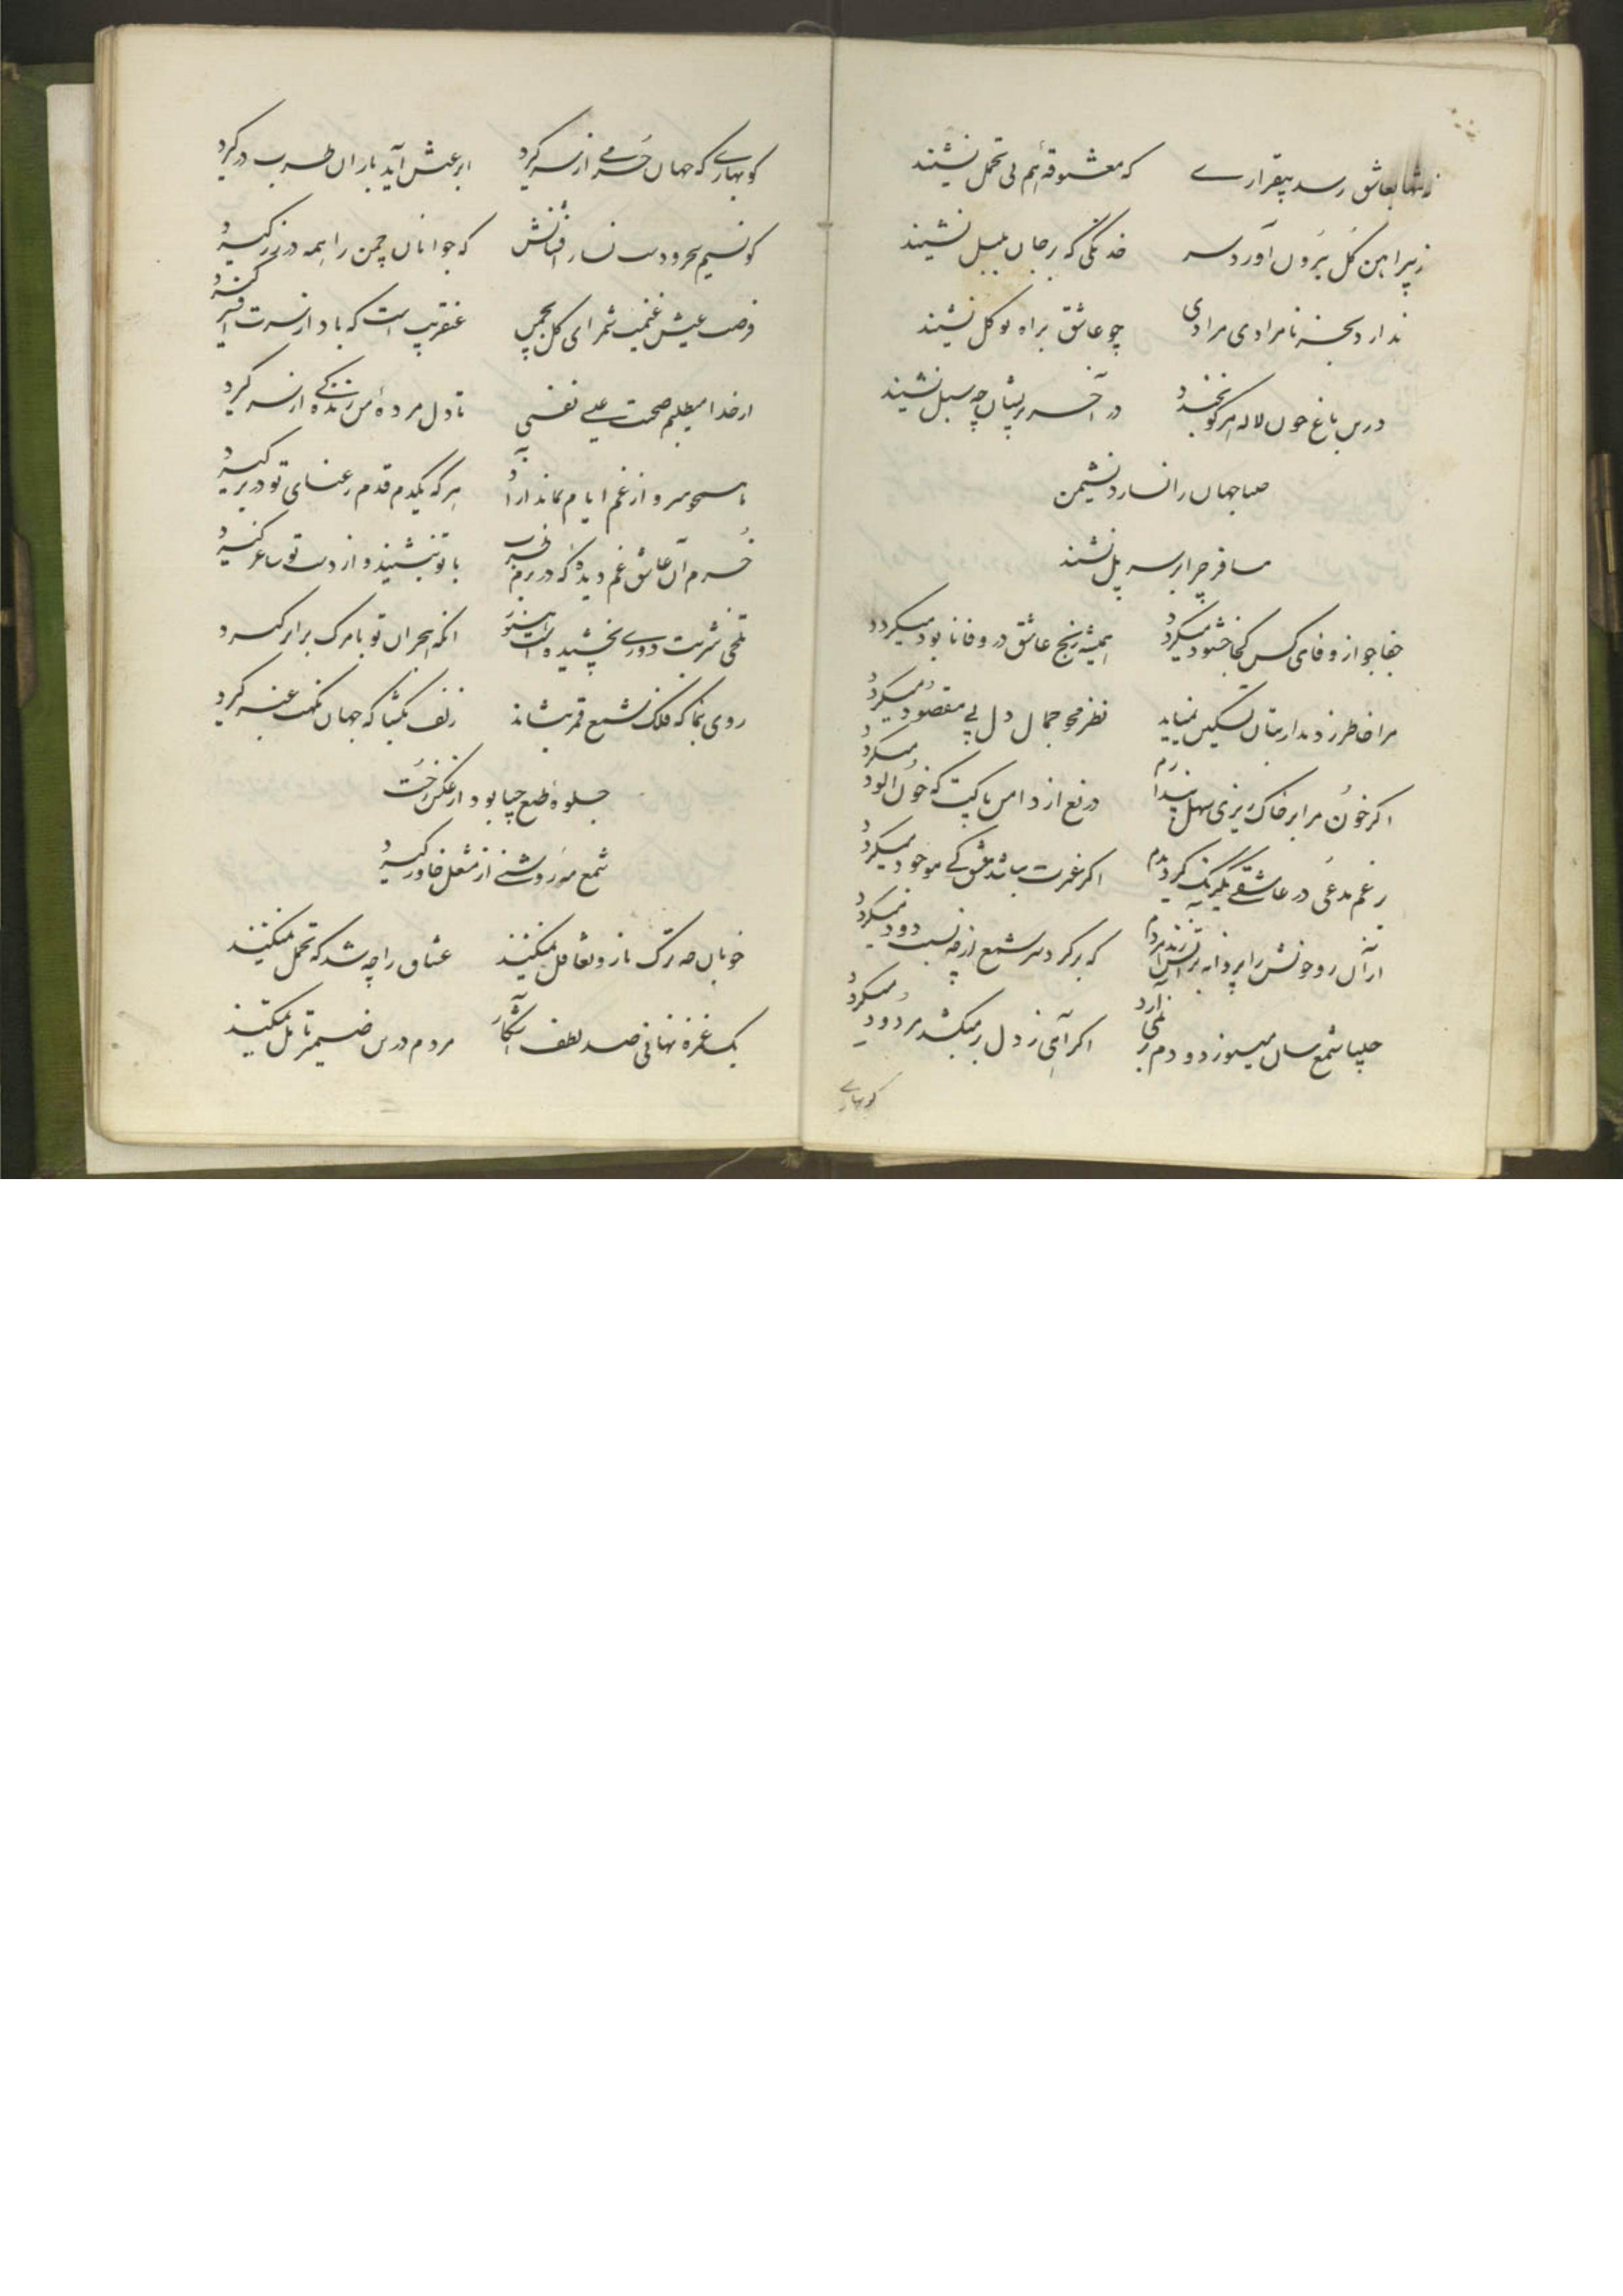 نه تنها بعاشق رسد بیقرارے که معشوقه هم بی تحمل نشیند
ز پیراهن گل بُرون آورد سر خدنگی که بر جان بلبل نشیند
ندارد بجز نامرادی مرادی چو عاشق براه توکل نشیند
درین باغ چون لاله هر کو بخندد در آخر پریشان چو سنبل نشیند
صبا جهان را نسازد نشیمن
مسافر چرا بر سر پل نشیند
جفا جو از وفای کس کجا خشنود میگردد همیشه رنج عاشق در وفا نابود میگردد
مرا خاطر ز دیدار بتان تسکین نمییابد نظر محو جمال و دل پی مقصود میگردد
اگر خُون مرا بر خاک ریزی سهل پندارم دریغ از دامن پاکت که خُون آلود میگردد
ز غم مدعی در عاشقے یکرنگ گردیدم اگر غیرت نباشد عشق کے موجود میگردد
از آن رو خوش را پروانه بر آتش زند هر دم که بر گرد سر شمع از چه نسبت دود میگردد
چلیپا شمع سان میسوزد و دم بر نمی آرد اگر آهی ز دل بر میکشد مردود میگردد
کو بهارے
کو بهارے که جهان خُرّمے از سر گیرد ابر عیش آید باران طرب در گیرد
کو نسیم سحر و دست نثار افشانش که جوانان چمن را همه در زر گیرد
فرصت عیش غنیمت شمر ای گل بچمن عنقریب است که باد از سرت افسر گیرد
از خدا میطلبم صحبت عیسی نفسی تا دل مردهٔ من زندگے از سر گیرد
همچو سرو از غم ایام بماند آزاد هر که یکدم قدم رعنای تو در بر گیرد
خُرم آن عاشق غم دیده که در بزم طرب با تو بنشیند و از دست تو ساغر گیرد
تلخی شربت دورے نچشیده است هنوز آنکه هجران تو با مرگ برابر گیرد
روی بنما که فلک شمع قمر بنشاند زلف بگشا که جهان نکهت عنبر گیرد
جلوهٔ طبع چلیپا بود از عکس رخت
شمع مه روشنے از مشعل خاور گیرد
خوبان چه ترک ناز و تغافل نمیکنند عشاق را چه شد که تحمل نمیکنند
یک غمزه نهانی و صد لطف آشکار مردم درین ضمیر تأمل نمیکنند